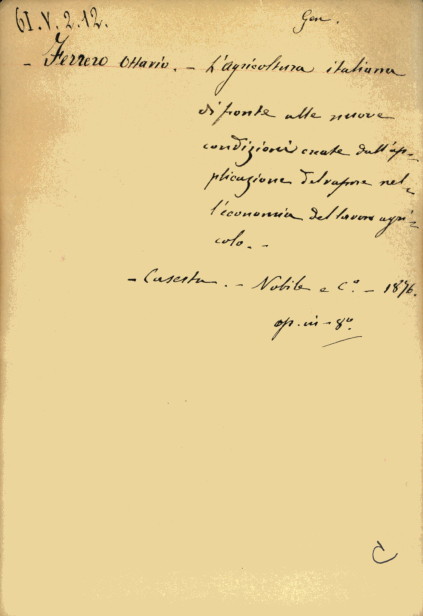 61.V.2.12.
Gen.
- Ferrero Ottavio. - L'agricoltura italiana
di fronte alle nuove
condizioni create dall'ap-
plicazione del vapore nel-
l'economia del lavoro agri-
colo. -
- Caserta. - Nobile e Cº. - 1876.
op. in - 8º
C